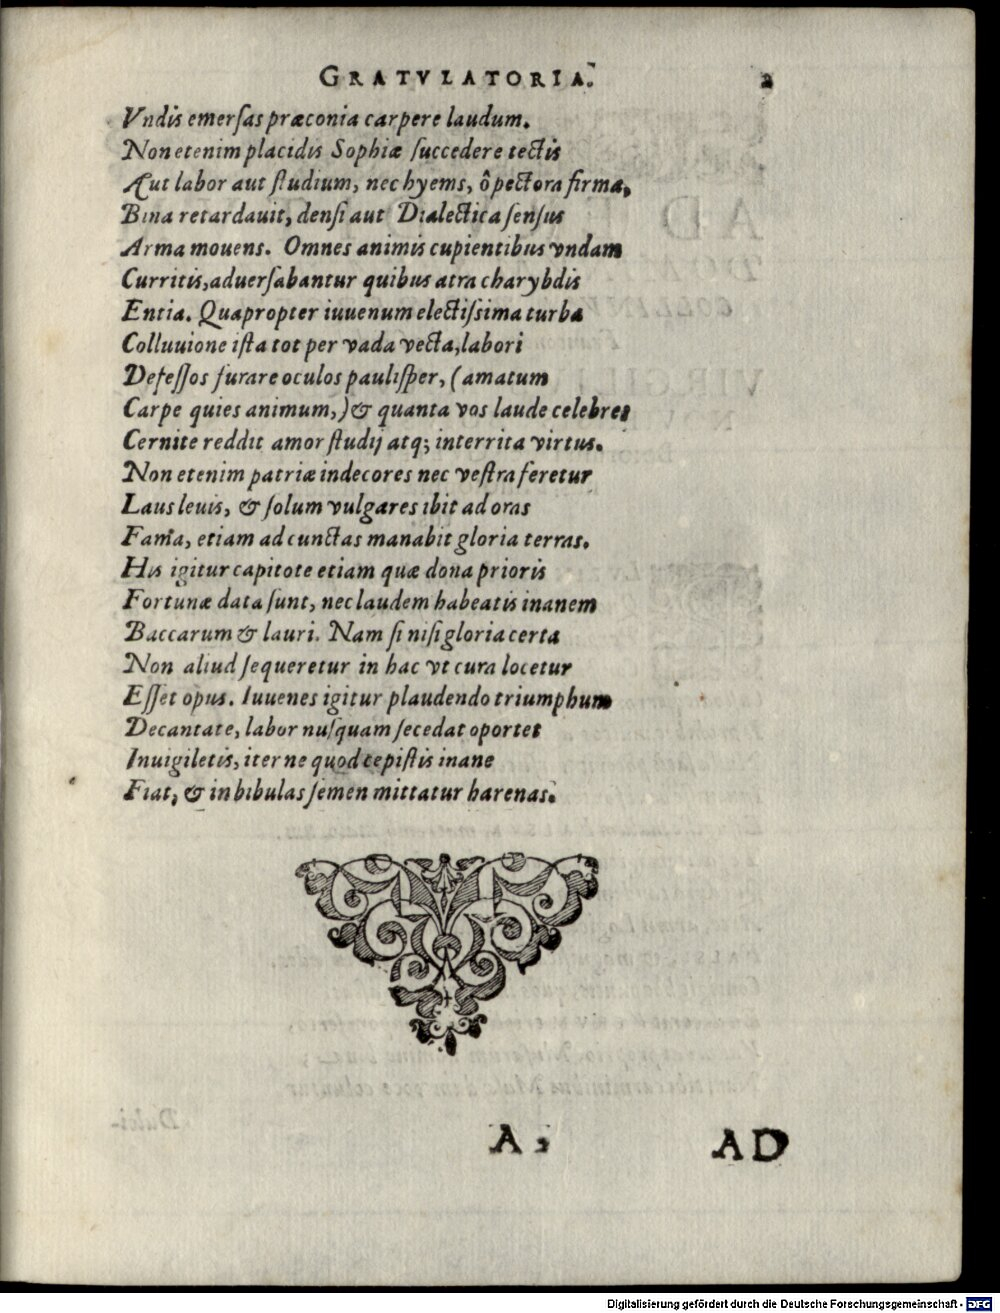 GRATVLATORIA. 2
Vndis emerſas præconia carpere laudum.
Non etenim placidis Sophiæ ſuccedere tectis
Aut labor aut ſtudium, nec hyems, ô pectora firma,
Bina retardauit, denſi aut Dialectica ſenſus
Arma mouens. Omnes animis cupientibus vndam
Curritis, aduerſabantur quibus atra charybdis
Entia. Quapropter iuuenum electiſsima turba
Colluuione iſta tot per vada vecta, labori
Defeſſos furare oculos pauliſper, (amatum
Carpe quies animum,) & quanta vos laude celebres
Cernite reddit amor ſtudij atq; interrita virtus.
Non etenim patriæ indecores nec veſtra feretur
Laus leuis, & ſolum vulgares ibit ad oras
Fama, etiam ad cunctas manabit gloria terras.
His igitur capitote etiam quæ dona prioris
Fortunæ data ſunt, nec laudem habeatis inanem
Baccarum & lauri. Nam ſi niſi gloria certa
Non aliud ſequeretur in hac vt cura locetur
Eſſet opus. Iuuenes igitur plaudendo triumphum
Decantate, labor nuſquam ſecedat oportet
Inuigiletis, iter ne quod cepiſtis inane
Fiat, & in bibulas ſemen mittatur harenas.
A 2 AD
Digitalisierung gefördert durch die Deutsche Forschungsgemeinschaft - DFG